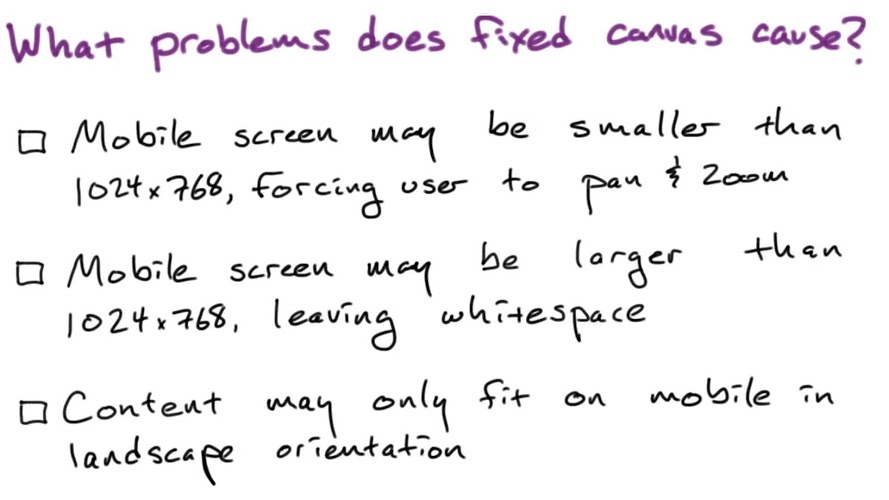 What problems does fixed canvas cause?
☐ Mobile screen may be smaller than
1024x768, forcing user to pan & zoom
☐ Mobile screen may be larger than
1024x768, leaving whitespace
☐ Content may only fit on mobile in
landscape orientation